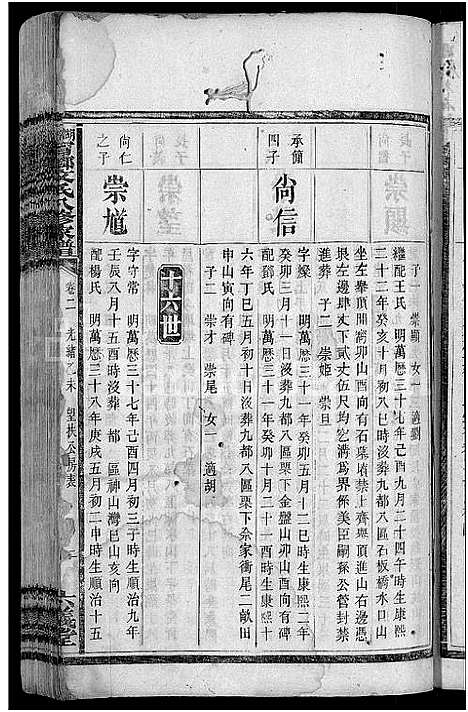 子一 崇顯 女一 適劉
繼配王氏 明萬曆三十七年己酉九月二十四午時生康熙
二十二年癸亥十月八巳時沒葬九都八區石板橋水口山
坐左舉頂開窩卯山酉向有石墓墳禁上齊舉頂山右邊憑
垠左邊肆丈下貳丈伍尺均空溝爲界係美臣嗣孫公管封禁
進葬 子二 崇姫 崇旦
承簡
四子
尙信
字燦 明萬曆三十一年癸卯五月十二巳時生康熙二年
癸卯三月十一日沒葬九都八區栗下金盤山卯山酉向有碑
配鄧氏 明萬曆三十一年癸卯十月二十一酉時生康熙十
六年丁巳五月初十日沒葬九都八區栗下佘家衝尾二畝田
申山寅向有碑
子二 崇才 崇尾 女一 適胡
十六世
尙仁
之子
崇尷
字守常 明萬曆三十七年己酉四月初三子時生順治九年
壬辰八月十五酉時沒葬 都 區神山灣巳山亥向
配楊氏 明萬曆三十八年庚戌五月初二申時生順治十五
鄉文氏八修家譜
卷二 光緒乙未
公房表
堂